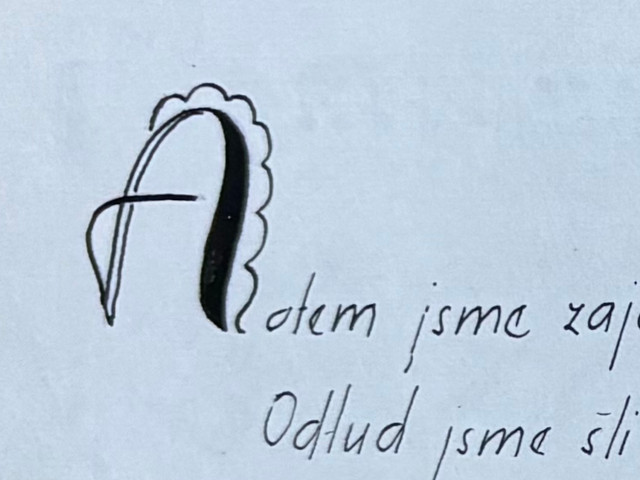 Aotem jsme zaj
Odtud jsme šli